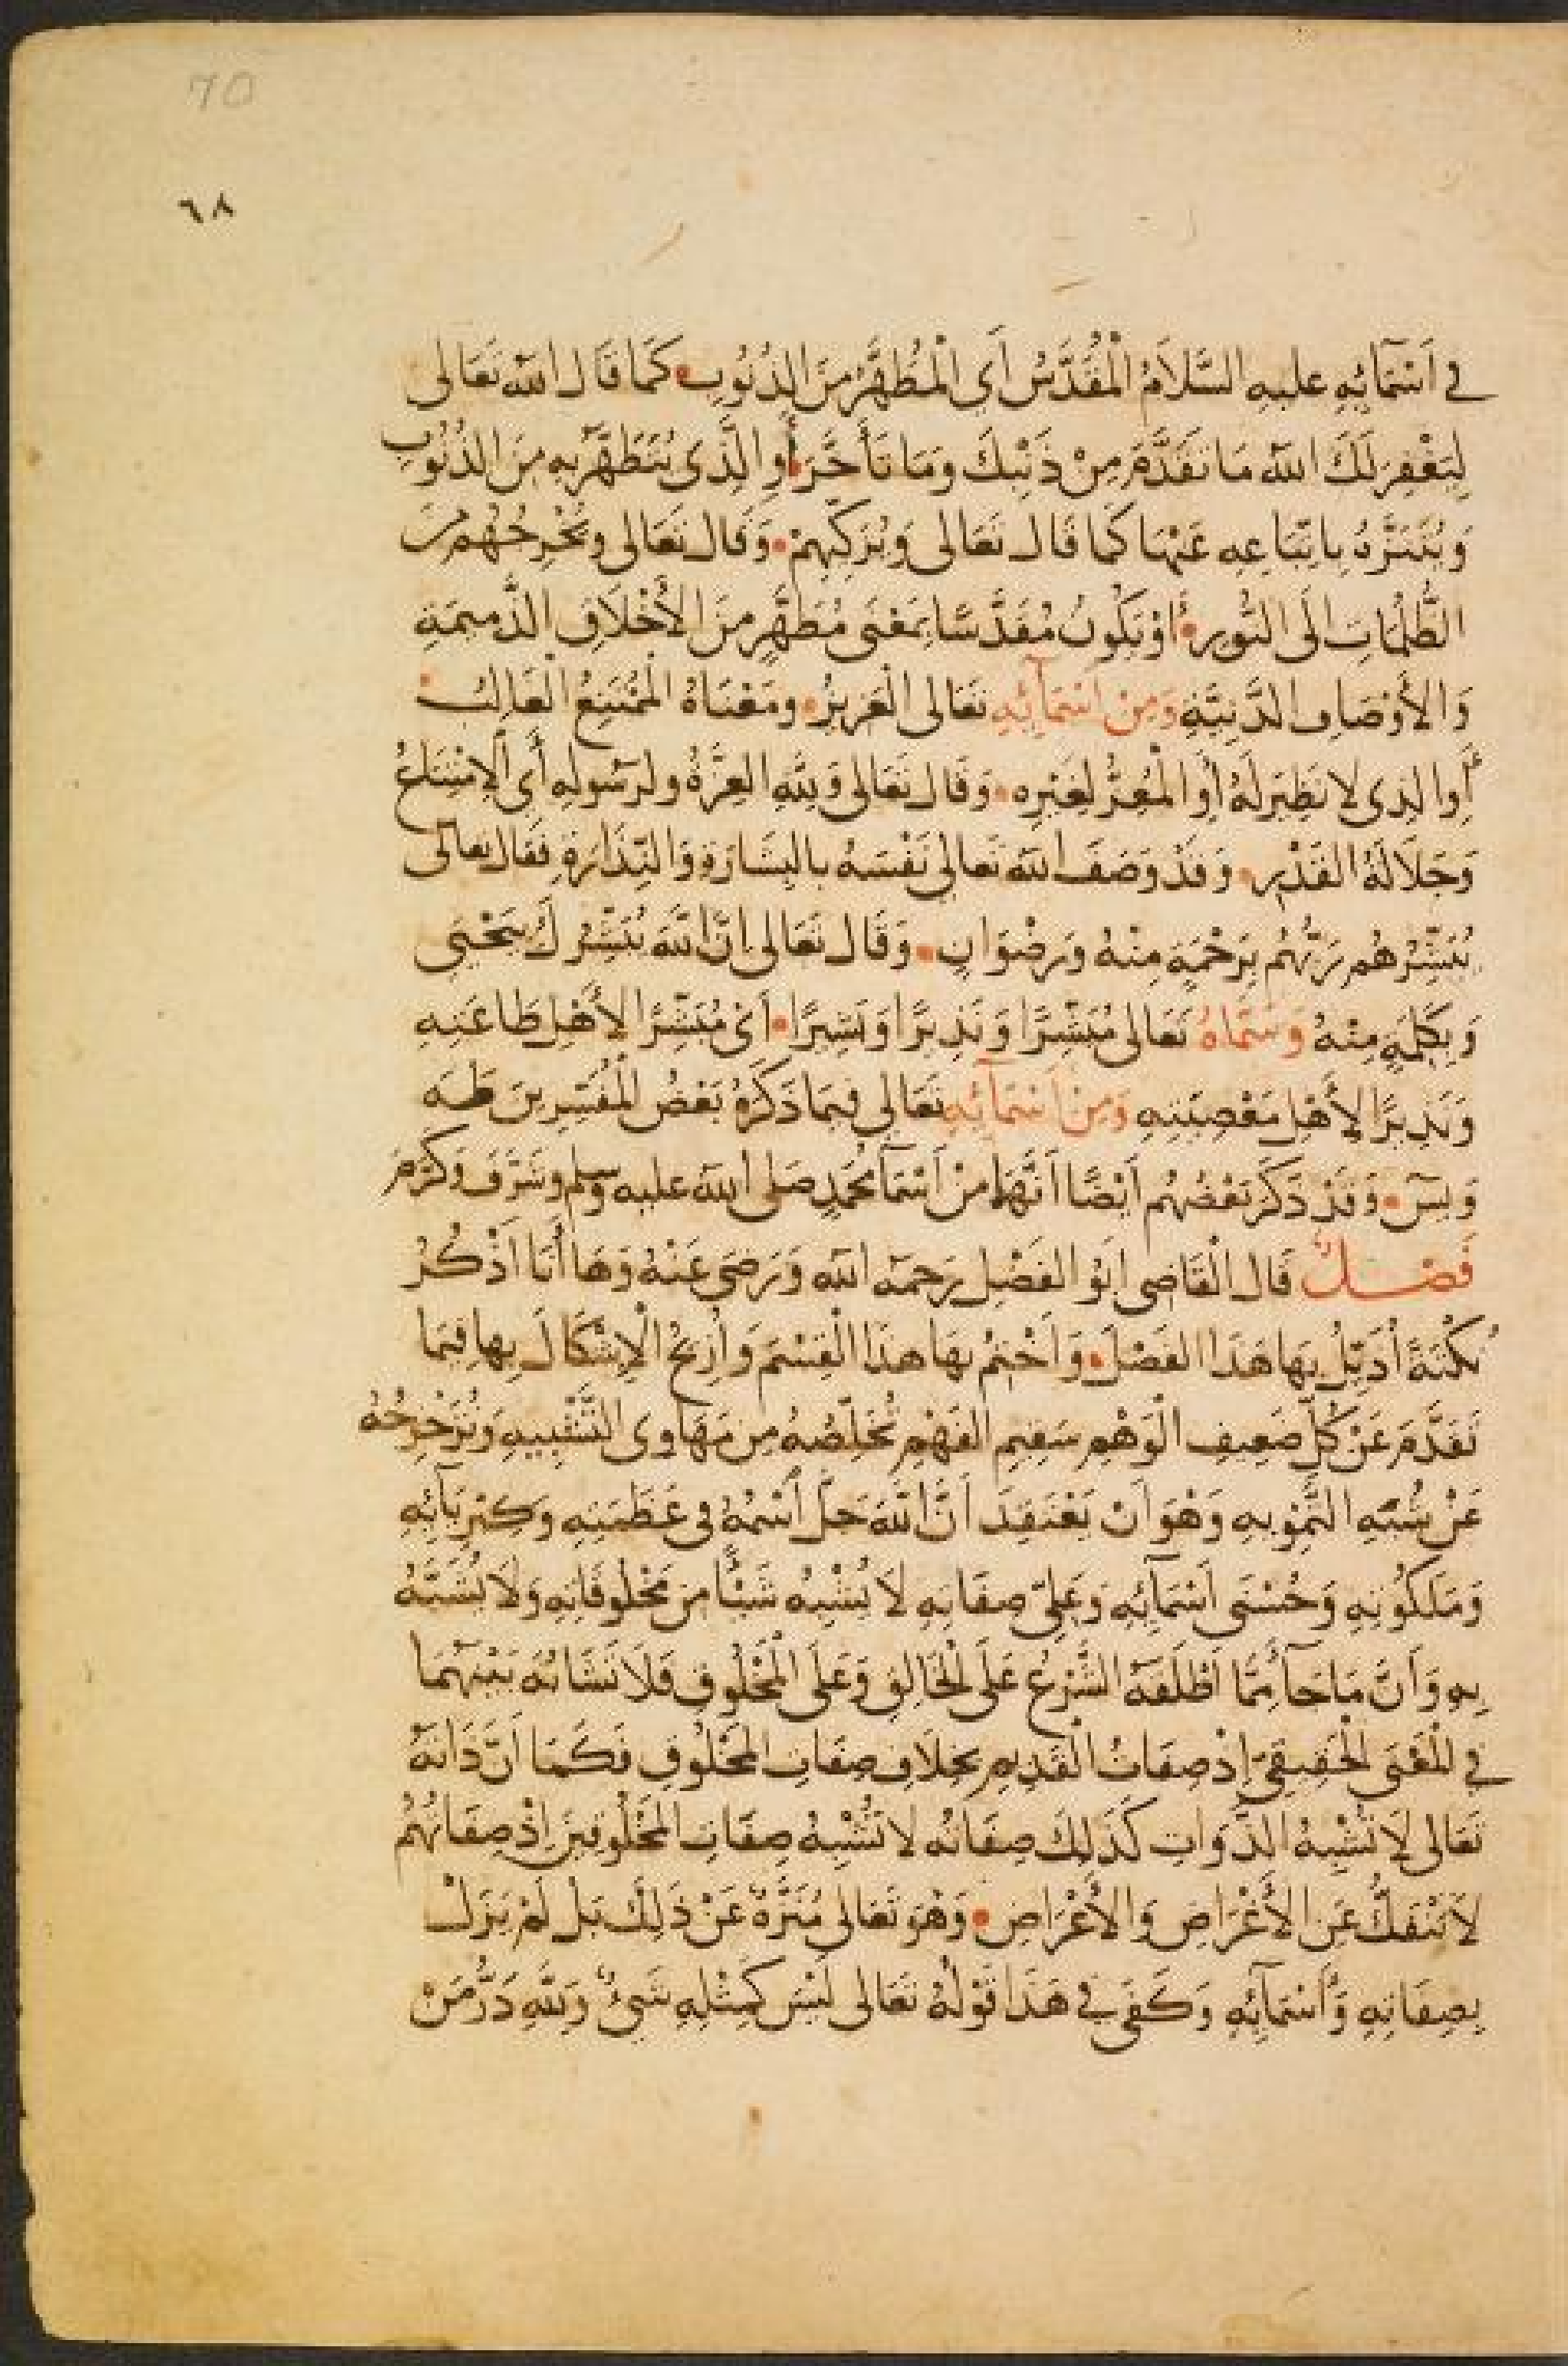 70
٦٨
في اَسْمَآئِهِ عليهِ السَّلاَمُ الْمُقَدَّسُ أَيِ الْمُطَهَّرُ مِنَ الذُّنُوبِ كَمَا قَالَ اللّٰه تَعَالى
لِيَغْفِرَ لَكَ اللّٰه مَا تَقَدَّمَ مِنْ ذَنْبِكَ وَمَا تَأَخَّرَ أَوِ الَّذِى يُتَطَهَّرُ بِهِ مِنَ الذُّنُوبِ
وَيُتَنَزَّهُ بِاتِّبَاعِهِ عَنْهَا كَمَا قَالَ تَعَالى وَيُزَكِّيهِمْ وَقَالَ تَعَالى وَيُخْرِجُهُمْ مِنَ
الظُّلُمَاتِ إلَى النُّورِ أَوْ يَكُونُ مُقَدَّسًا بِمَعْنَى مُطَهَّرٍ مِنَ الأَخْلاَقِ الذَّمِيمَةِ
وَالأَوْصَافِ الدَّنِيَّةِ وَمِنْ اَسْمَآئِهِ تَعَالى الْعَزِيزُ وَمَعْنَاهُ الْمُمْتَنِعُ الْغَالِبُ
أَوِ الذِى لا نَظِيرَ لَهُ أَوِ الْمُعِزُّ لِغَيْرِهِ وَقَالَ تَعَالى وَلِلّٰهِ العِزَّةُ ولرَسُولِهِ أَيِ الاِمْتِنَاعُ
وَجَلاَلَةُ القَدْرِ وَقَدْ وَصَفَ اللّٰه تَعَالى نَفْسَهُ بالبِشَارَةِ وَالنِّذَارَةِ فَقَالَ تعالى
يُبَشِّرُهُمْ رَبُّهُمْ بِرَحْمَةٍ مِنْهُ وَرِضْوَانٍ وَقَالَ تَعَالى إنَّ اللّٰهَ يُبَشِّرُكَ بِيَحْيَى
وَبِكَلِمَةٍ مِنْهُ وَسَمَّاهُ تَعَالى مُبَشِّرًا وَنَذِيرًا وَبَشِيرًا أَىْ مُبَشِّرًا لأَهْلِ طَاعَتِهِ
وَنَذِيرًا لأَهْلِ مَعْصِيَتِهِ وَمِنْ اَسْمَآئِهِ تَعَالى فِيمَا ذَكَرَهُ بَعْضُ الْمُفَسِّرِينَ طَهَ
وَيسَ وَقَدْ ذَكَرَ بَعْضُهُم أَيْضًا أَنَّهُمَا مِنْ أَسْمَآ مُحَمَّدٍ صَلى اللّٰه عليه وسلم وشَرَّفَ وَكَرَّمَ
فَصْلٌ قَالَ الْقَاضِى أَبُو الفَضْلِ رَحِمَه اللّٰه وَرَضِىَ عَنْهُ وَهَا أَنَا أَذْكُرُ
نُكْتَةً أُذَيِّلُ بِهَا هَذَا الفَصْلَ وَأَخْتِمُ بِهَا هذا الْقِسْمَ وَأُزِيحُ الْإشْكَالَ بِهَا فِيمَا
تَقَدَّمَ عَنْ كُلِّ ضَعِيفِ الْوَهْمِ سَقِيمِ الفَهْمِ تُخَلِّصُهُ مِن مَهَاوِى التَّشْبِيهِ وَتُزَحْزِحُهُ
عَنْ شُبَهِ التَّمْوِيهِ وَهْوَ اَنْ يَعْتَقِدَ اَنَّ اللّٰهَ جَلَّ اسْمُهُ فِى عَظَمَتِهِ وَكِبْرِيَآئِهِ
وَمَلَكُوتِهِ وَحُسْنَى اَسْمَآئِهِ وَعَلِىِّ صِفَاتِهِ لاَ يُشْبِهُ شَيْئًا مِن مَخْلُوقَاتِهِ وَلاَ يُشَبَّهُ
بِهِ وَاَنَّ مَا جَآءَ مِمَّا اَطْلَقَهُ الشَّرْعُ عَلَى الْخَالِقِ وَعَلَى الْمَخْلُوقِ فَلاَ تَشَابُهَ بَيْنَهُمَا
فِي الْمَعْنَى الْحَقِيقِىِّ إِذْ صِفَاتُ الْقَدِيمِ بخِلاَفِ صِفَاتِ المَخْلُوقِ فَكَمَا اَنَّ ذَاتَهُ
تَعَالى لاَ تُشْبِهُ الذَّوَاتِ كَذَلِكَ صِفَاتُه لا تُشْبِهُ صِفَاتِ المَخْلُوقِينَ إِذْ صِفَاتُهُمْ
لاَ تَنْفَكُّ عَنِ الأَغْرَاضِ وَالأَعْرَاضِ وَهْوَ تَعَالى مُنَزَّهٌ عَنْ ذَلِكَ بَلْ لَمْ يَزَلْ
بِصِفَاتِهِ وَأَسْمَآئِهِ وَكَفَى فِي هَذَا قَوْلُهُ تَعَالى لَيْسَ كَمِثْلِهِ شَىْءٌ وَلِلّٰهِ دَرُّ مَنْ